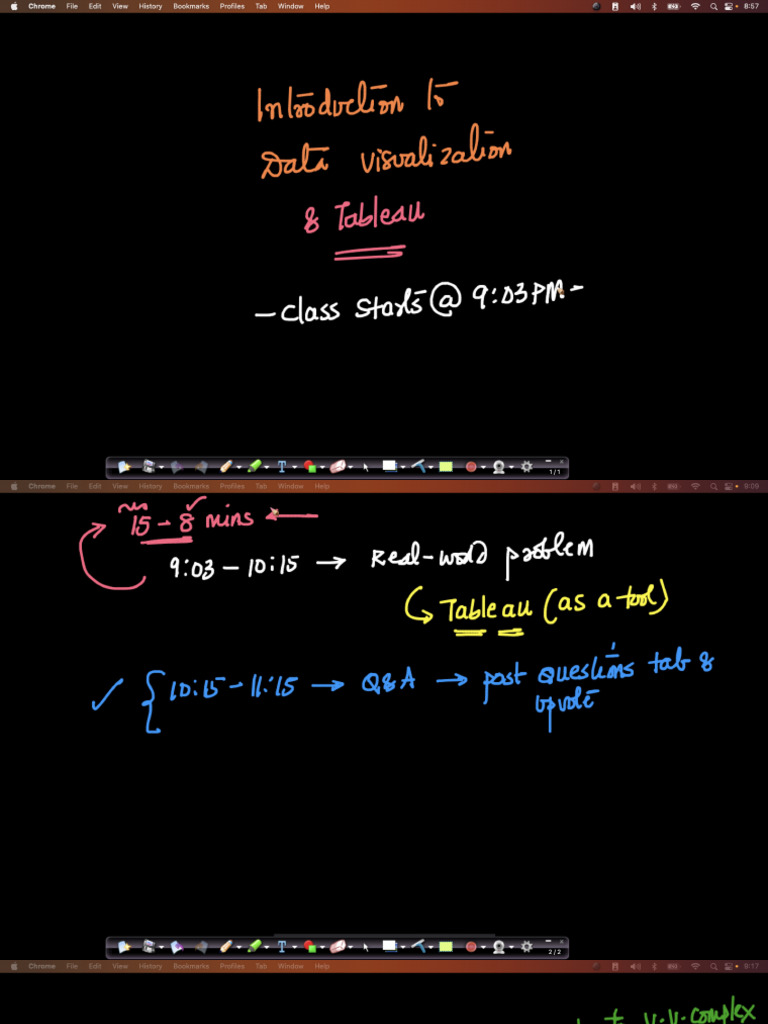 Chrome File Edit View History Bookmarks Profiles Tab Window Help 8:57
Introduction to
Data visualization
& Tableau
- class starts @ 9:03 PM -
1/1
Chrome File Edit View History Bookmarks Profiles Tab Window Help 9:09
15 - 8 mins
9:03 - 10:15 → Real-world problem
Tableau (as a tool)
10:15 - 11:15 → Q&A → post questions tab &
upvote
2/2
Chrome File Edit View History Bookmarks Profiles Tab Window Help 9:17
complex